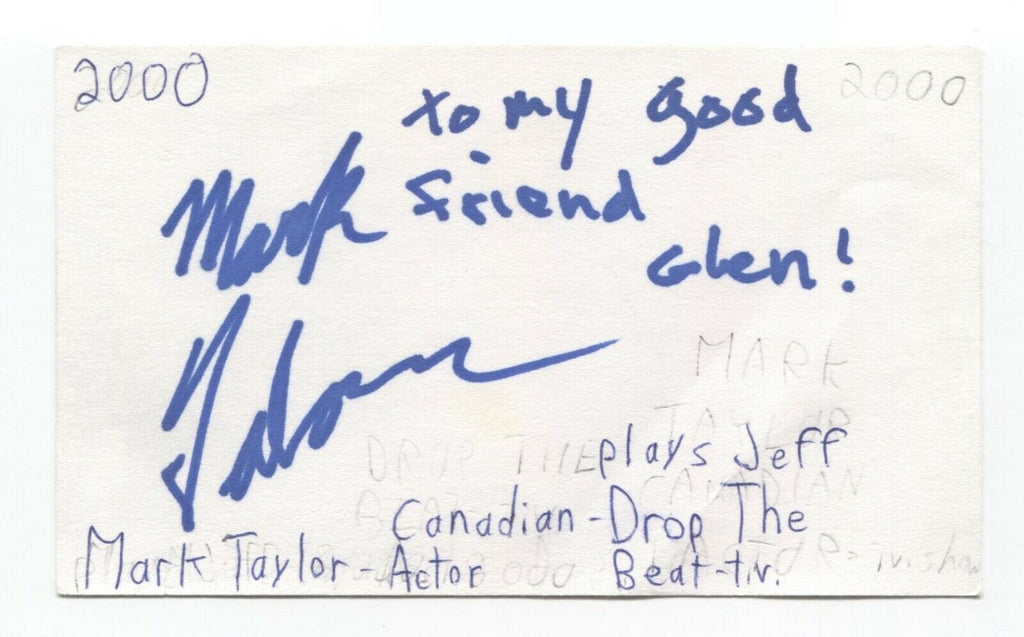 2000
2000
to my good
Mark friend
Glen!
Taylor
MARK
TAYLOR
DROP THE plays Jeff
BEAT CANADIAN
Canadian - Drop The
Mark Taylor - Actor Beat - t.v.
ACTOR - Tv. show